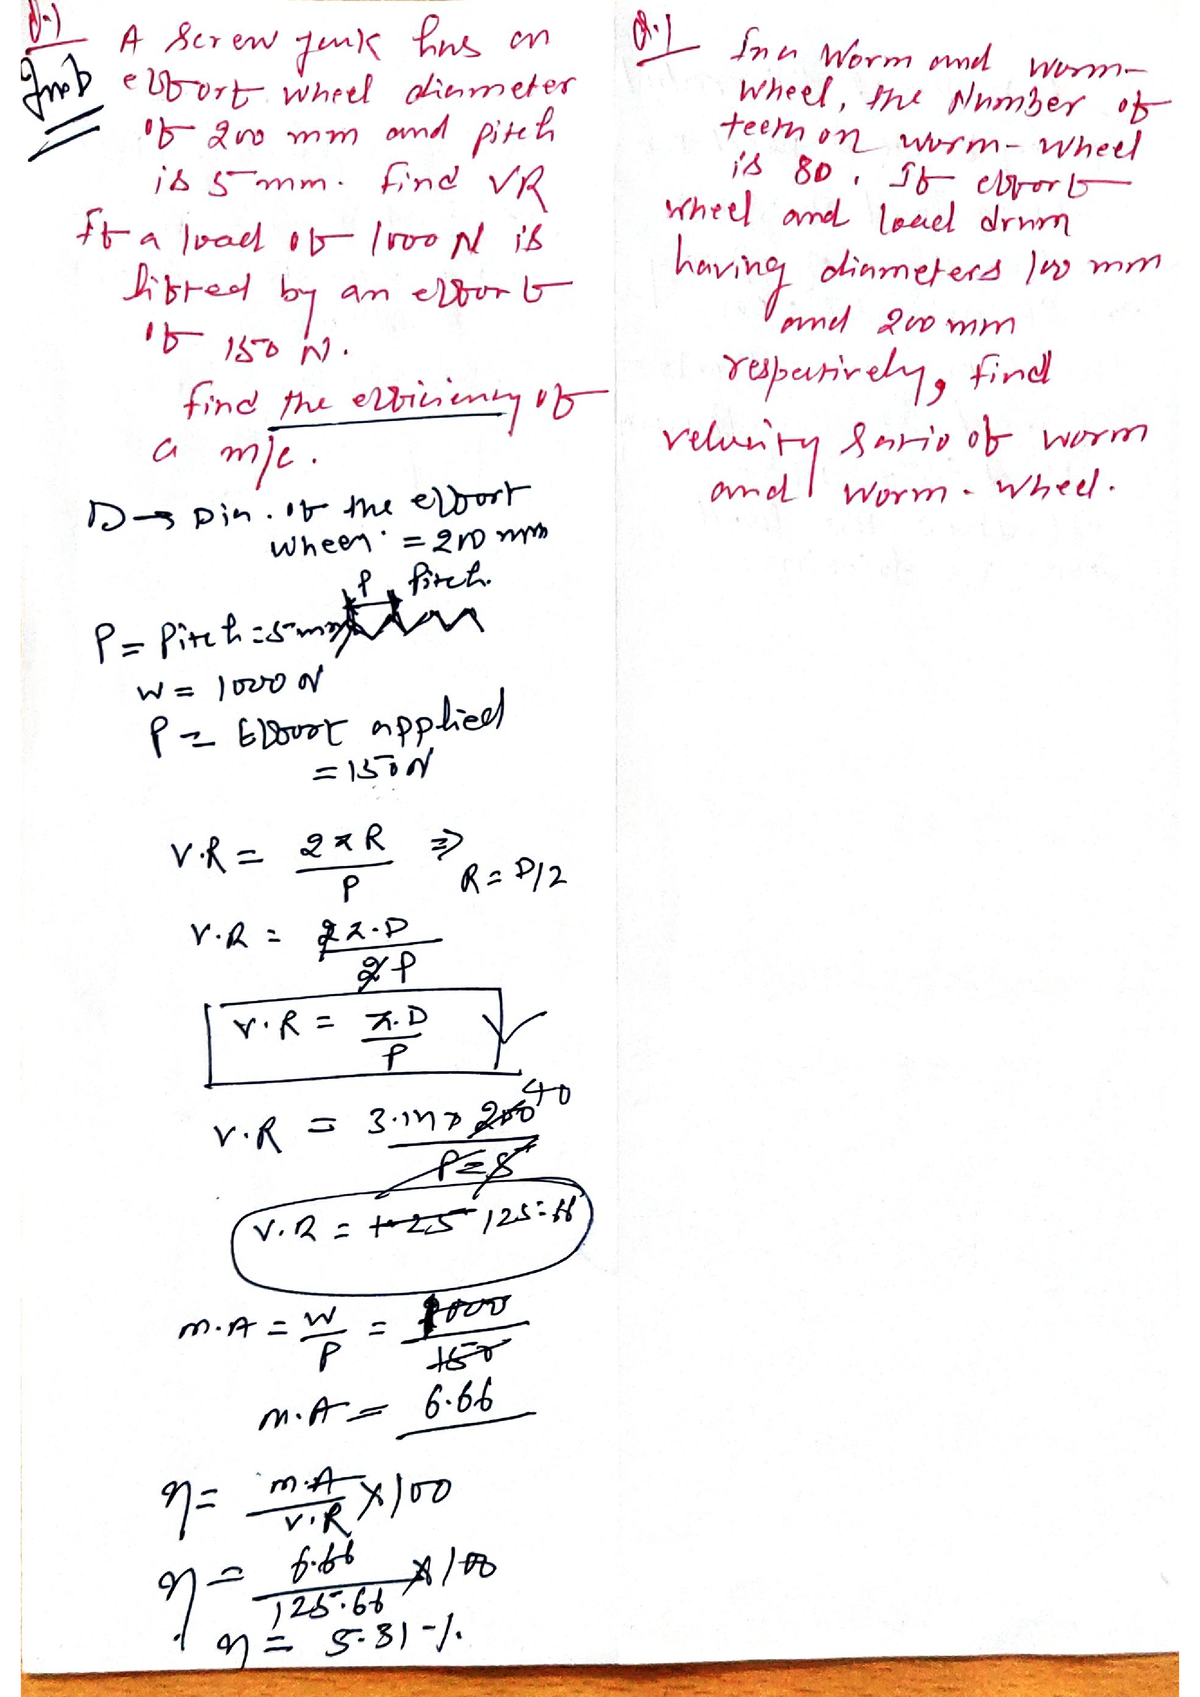 Q.1
A Screw jack has an
effort wheel diameter
of 200 mm and pitch
is 5 mm. find VR
If a load of 1000 N is
lifted by an effort
of 150 N.
find the efficiency of
a m/c.
D → Dia. of the effort
wheel = 200 mm
P pitch.
P = Pitch = 5 mm
W = 1000 N
P = Effort applied
= 150 N
V.R = 2πR / P ⇒ R = D/2
V.R = 2π.D / 2P
V.R = π.D / P
V.R = 3.14 × 200 40 / P = 5
V.R = 125.66
M.A = W / P = 1000 / 150
M.A = 6.66
η = M.A / V.R × 100
η = 6.66 / 125.66 × 100
η = 5.31 %.
Q.1
In a Worm and worm-
wheel, the Number of
teeth on worm-wheel
is 80. If effort
wheel and load drum
having diameters 100 mm
and 200 mm
respectively, find
velocity ratio of worm
and worm-wheel.